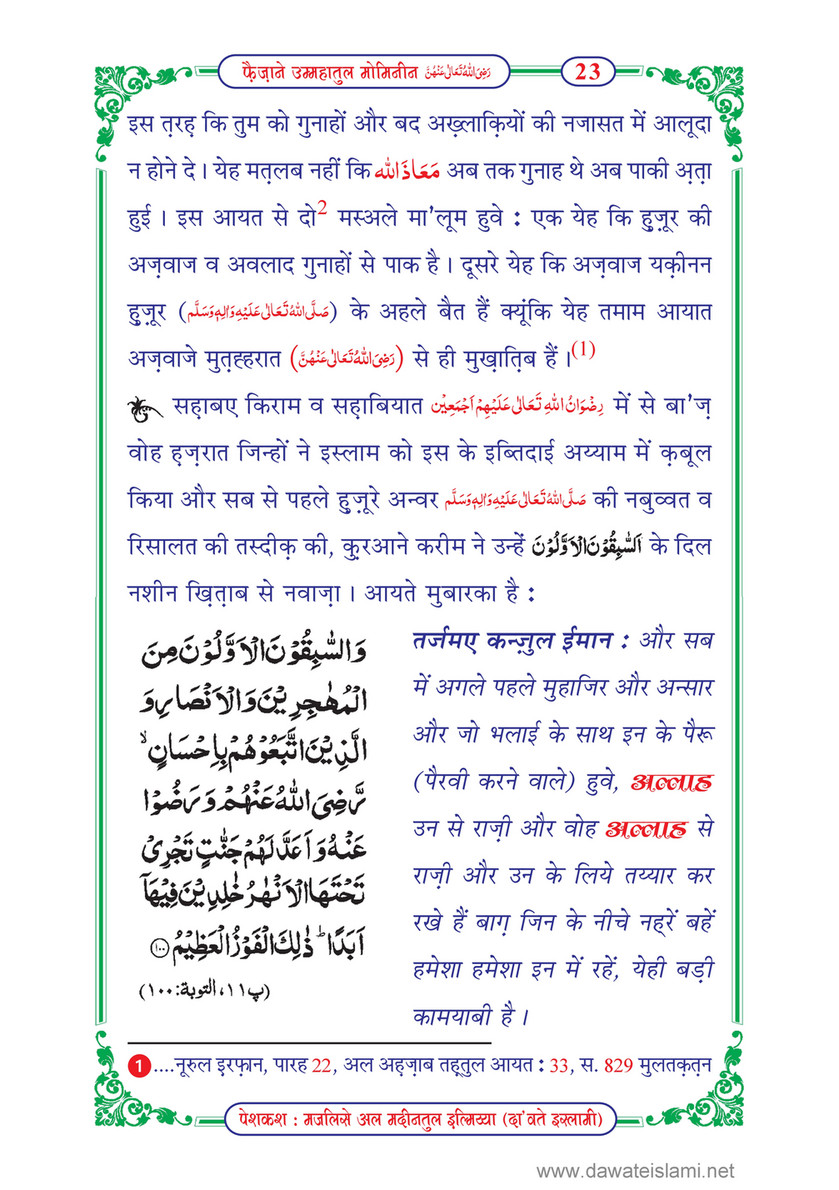 फ़ैज़ाने उम्महातुल मोमिनीन رَضِیَ اللّٰهُ تَعَالٰی عَنْهُنَّ 23
इस त़रह़ कि तुम को गुनाहों और बद अख़्लाक़ियों की नजासत में आलूदा
न होने दे । येह मत़लब नहीं कि مَعَاذَ اللّٰه अब तक गुनाह थे अब पाकी अ़त़ा
हुई । इस आयत से दो2 मस्अले मा'लूम हुवे : एक येह कि हुज़ूर की
अज़वाज व अवलाद गुनाहों से पाक है । दूसरे येह कि अज़वाज यक़ीनन
हुज़ूर (صَلَّی اللّٰهُ تَعَالٰی عَلَیْهِ وَاٰلِهٖ وَسَلَّم) के अहले बैत हैं क्यूंकि येह तमाम आयात
अज़वाजे मुत़ह्हरात (رَضِیَ اللّٰهُ تَعَالٰی عَنْهُنَّ) से ही मुख़ात़िब हैं ।(1)
सह़ाबए किराम व सह़ाबियात رِضْوَانُ اللّٰهِ تَعَالٰی عَلَیْهِمْ اَجْمَعِیْن में से बा'ज़
वोह ह़ज़रात जिन्हों ने इस्लाम को इस के इब्तिदाई अय्याम में क़बूल
किया और सब से पहले हुज़ूरे अन्वर صَلَّی اللّٰهُ تَعَالٰی عَلَیْهِ وَاٰلِهٖ وَسَلَّم की नबुव्वत व
रिसालत की तस्दीक़ की, क़ुरआने करीम ने उन्हें اَلسّٰبِقُوْنَ الْاَوَّلُوْنَ के दिल
नशीन ख़ित़ाब से नवाज़ा । आयते मुबारका है :
وَالسّٰبِقُوْنَ الْاَوَّلُوْنَ مِنَ
الْمُهٰجِرِیْنَ وَالْاَنْصَارِ وَ
الَّذِیْنَ اتَّبَعُوْهُمْ بِاِحْسَانٍ ۙ
رَّضِیَ اللّٰهُ عَنْهُمْ وَ رَضُوْا
عَنْهُ وَ اَعَدَّ لَهُمْ جَنّٰتٍ تَجْرِیْ
تَحْتَهَا الْاَنْهٰرُ خٰلِدِیْنَ فِیْهَاۤ
اَبَدًا ؕ ذٰلِكَ الْفَوْزُ الْعَظِیْمُ ۝۱۰۰
(پ۱۱، التوبة: ۱۰۰)
तर्जमए कन्ज़ुल ईमान : और सब
में अगले पहले मुहाजिर और अन्सार
और जो भलाई के साथ इन के पैरू
(पैरवी करने वाले) हुवे, अल्लाह
उन से राज़ी और वोह अल्लाह से
राज़ी और उन के लिये तय्यार कर
रखे हैं बाग़ जिन के नीचे नह्रें बहें
हमेशा हमेशा इन में रहें, येही बड़ी
कामयाबी है ।
1....नूरुल इ़रफ़ान, पारह 22, अल अह़ज़ाब तह़्तुल आयत : 33, स. 829 मुलतक़त़न
पेशकश : मजलिसे अल मदीनतुल इ़ल्मिय्या (दा'वते इस्लामी)
www.dawateislami.net